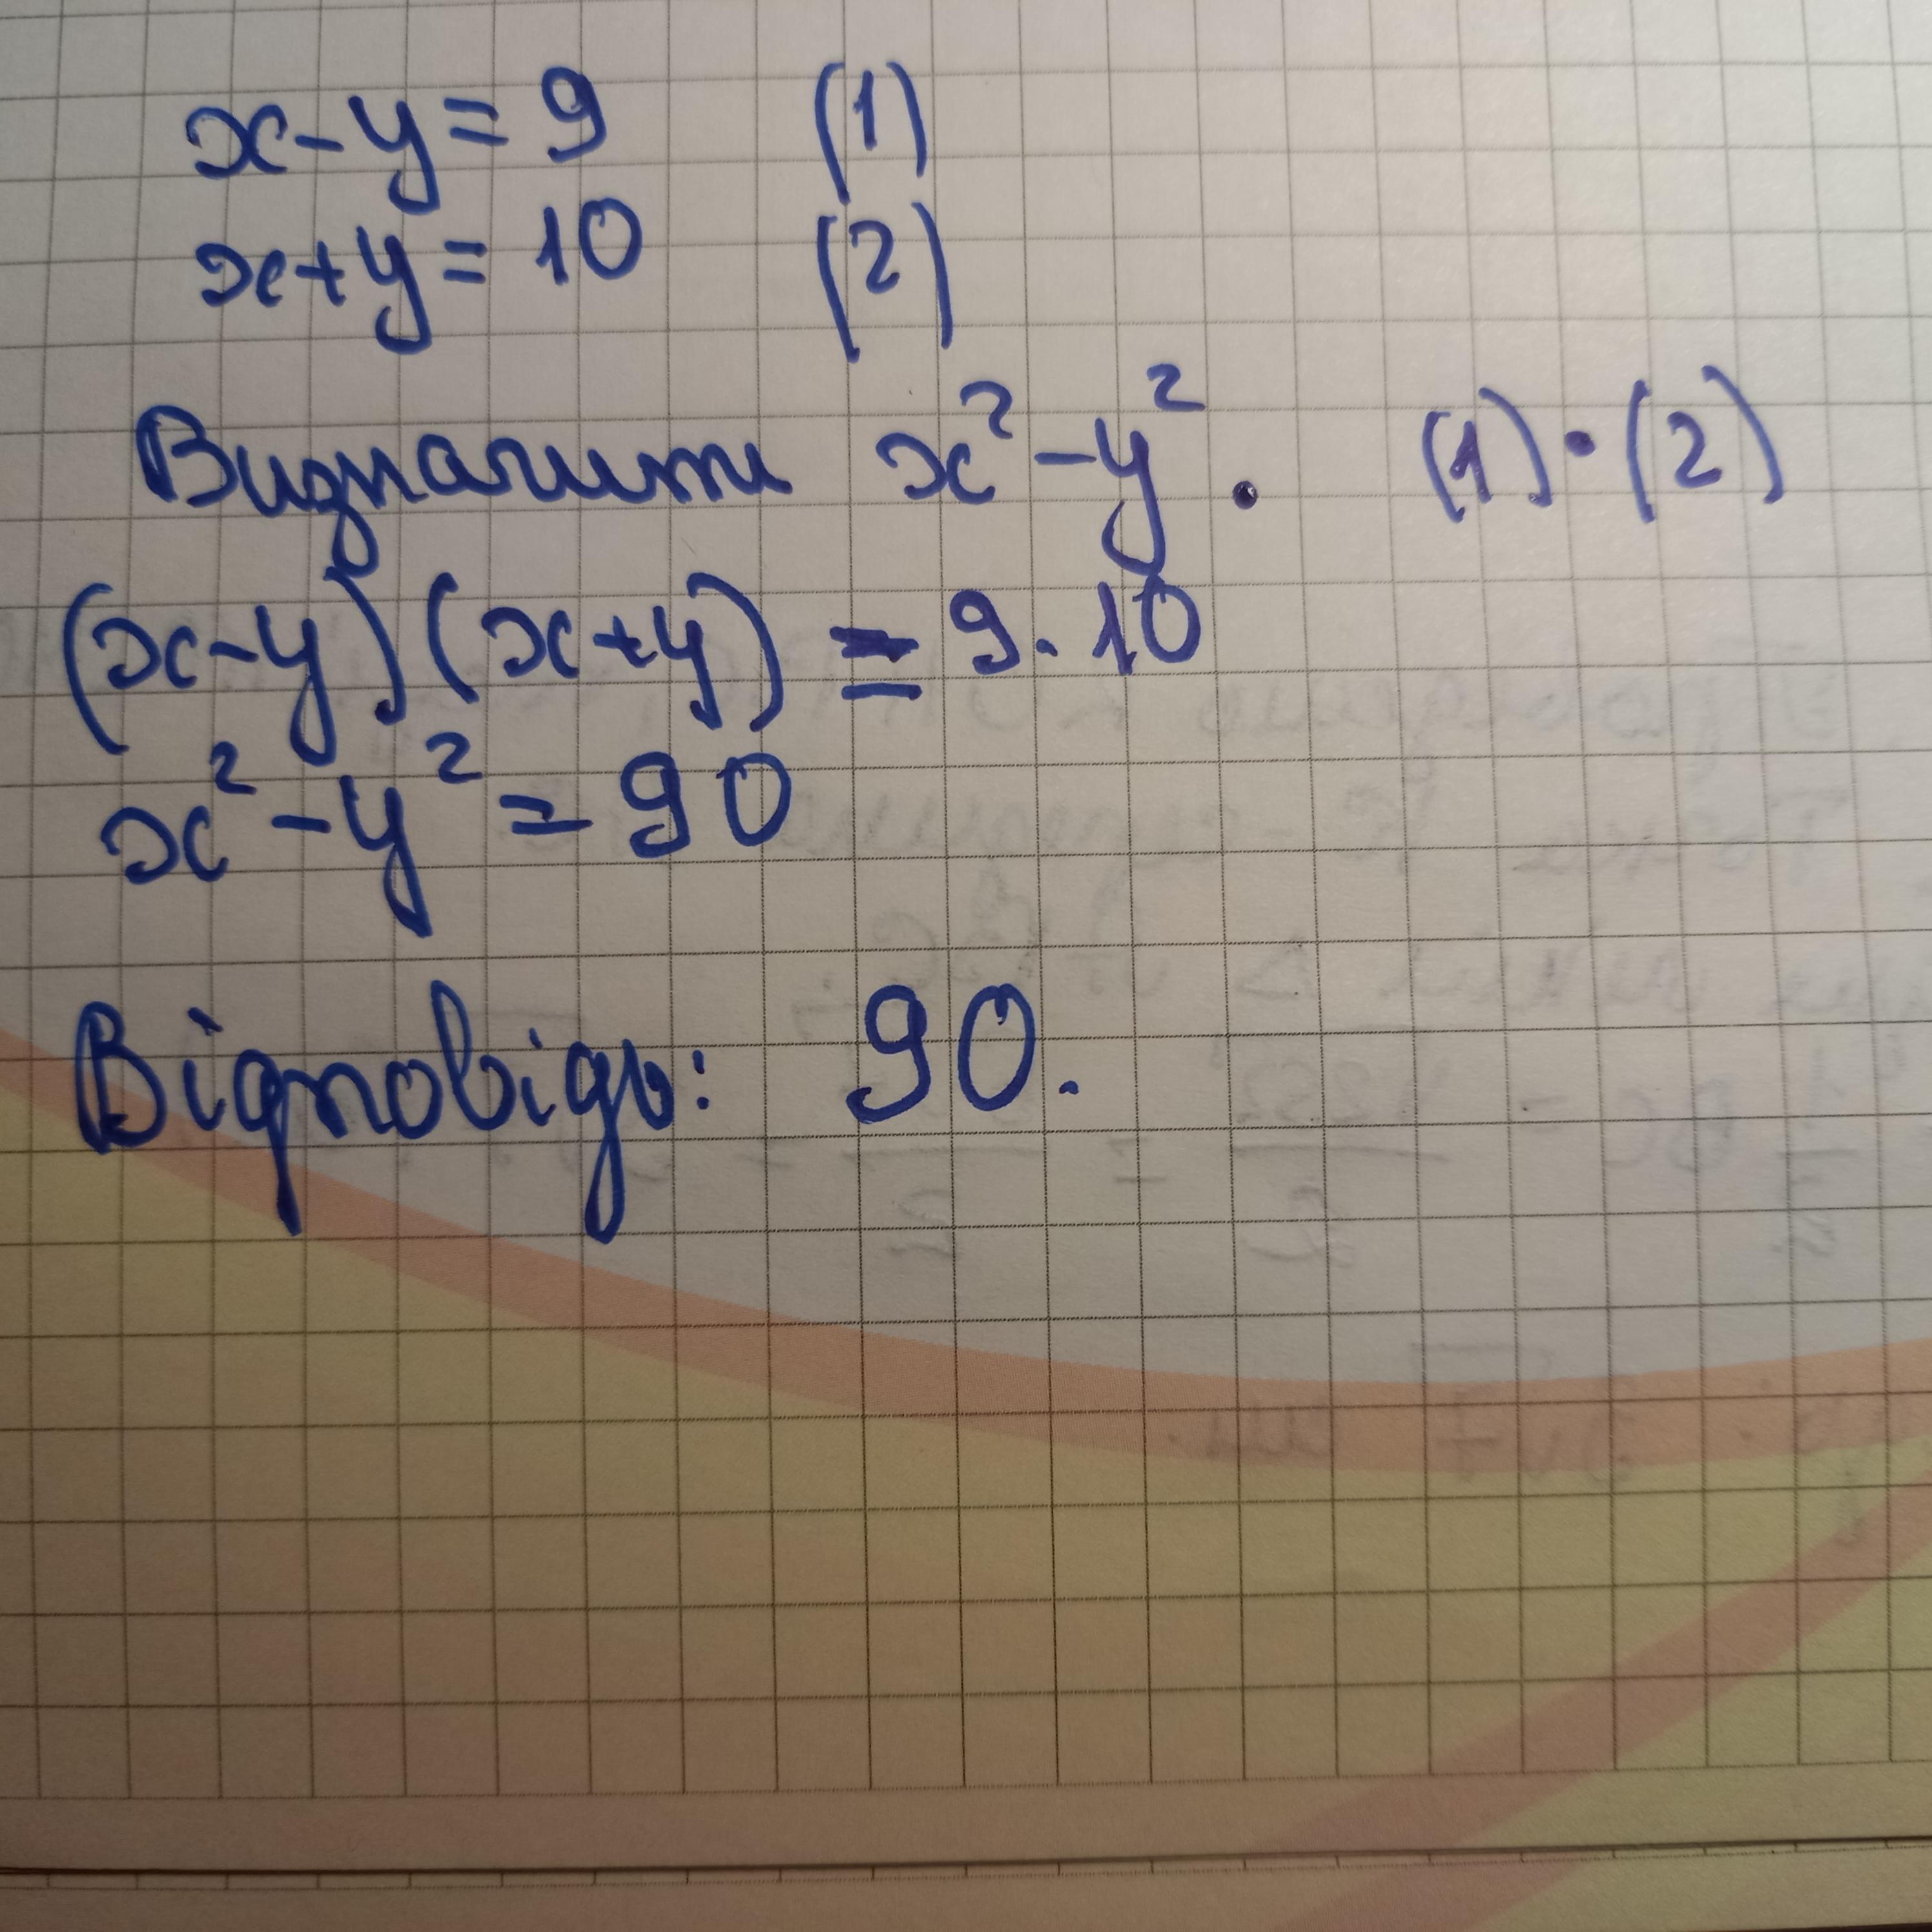 x-y=9 (1)
x+y=10 (2)
Визначити x²-y². (1)·(2)
(x-y)(x+y)=9·10
x²-y²=90
Відповідь: 90.